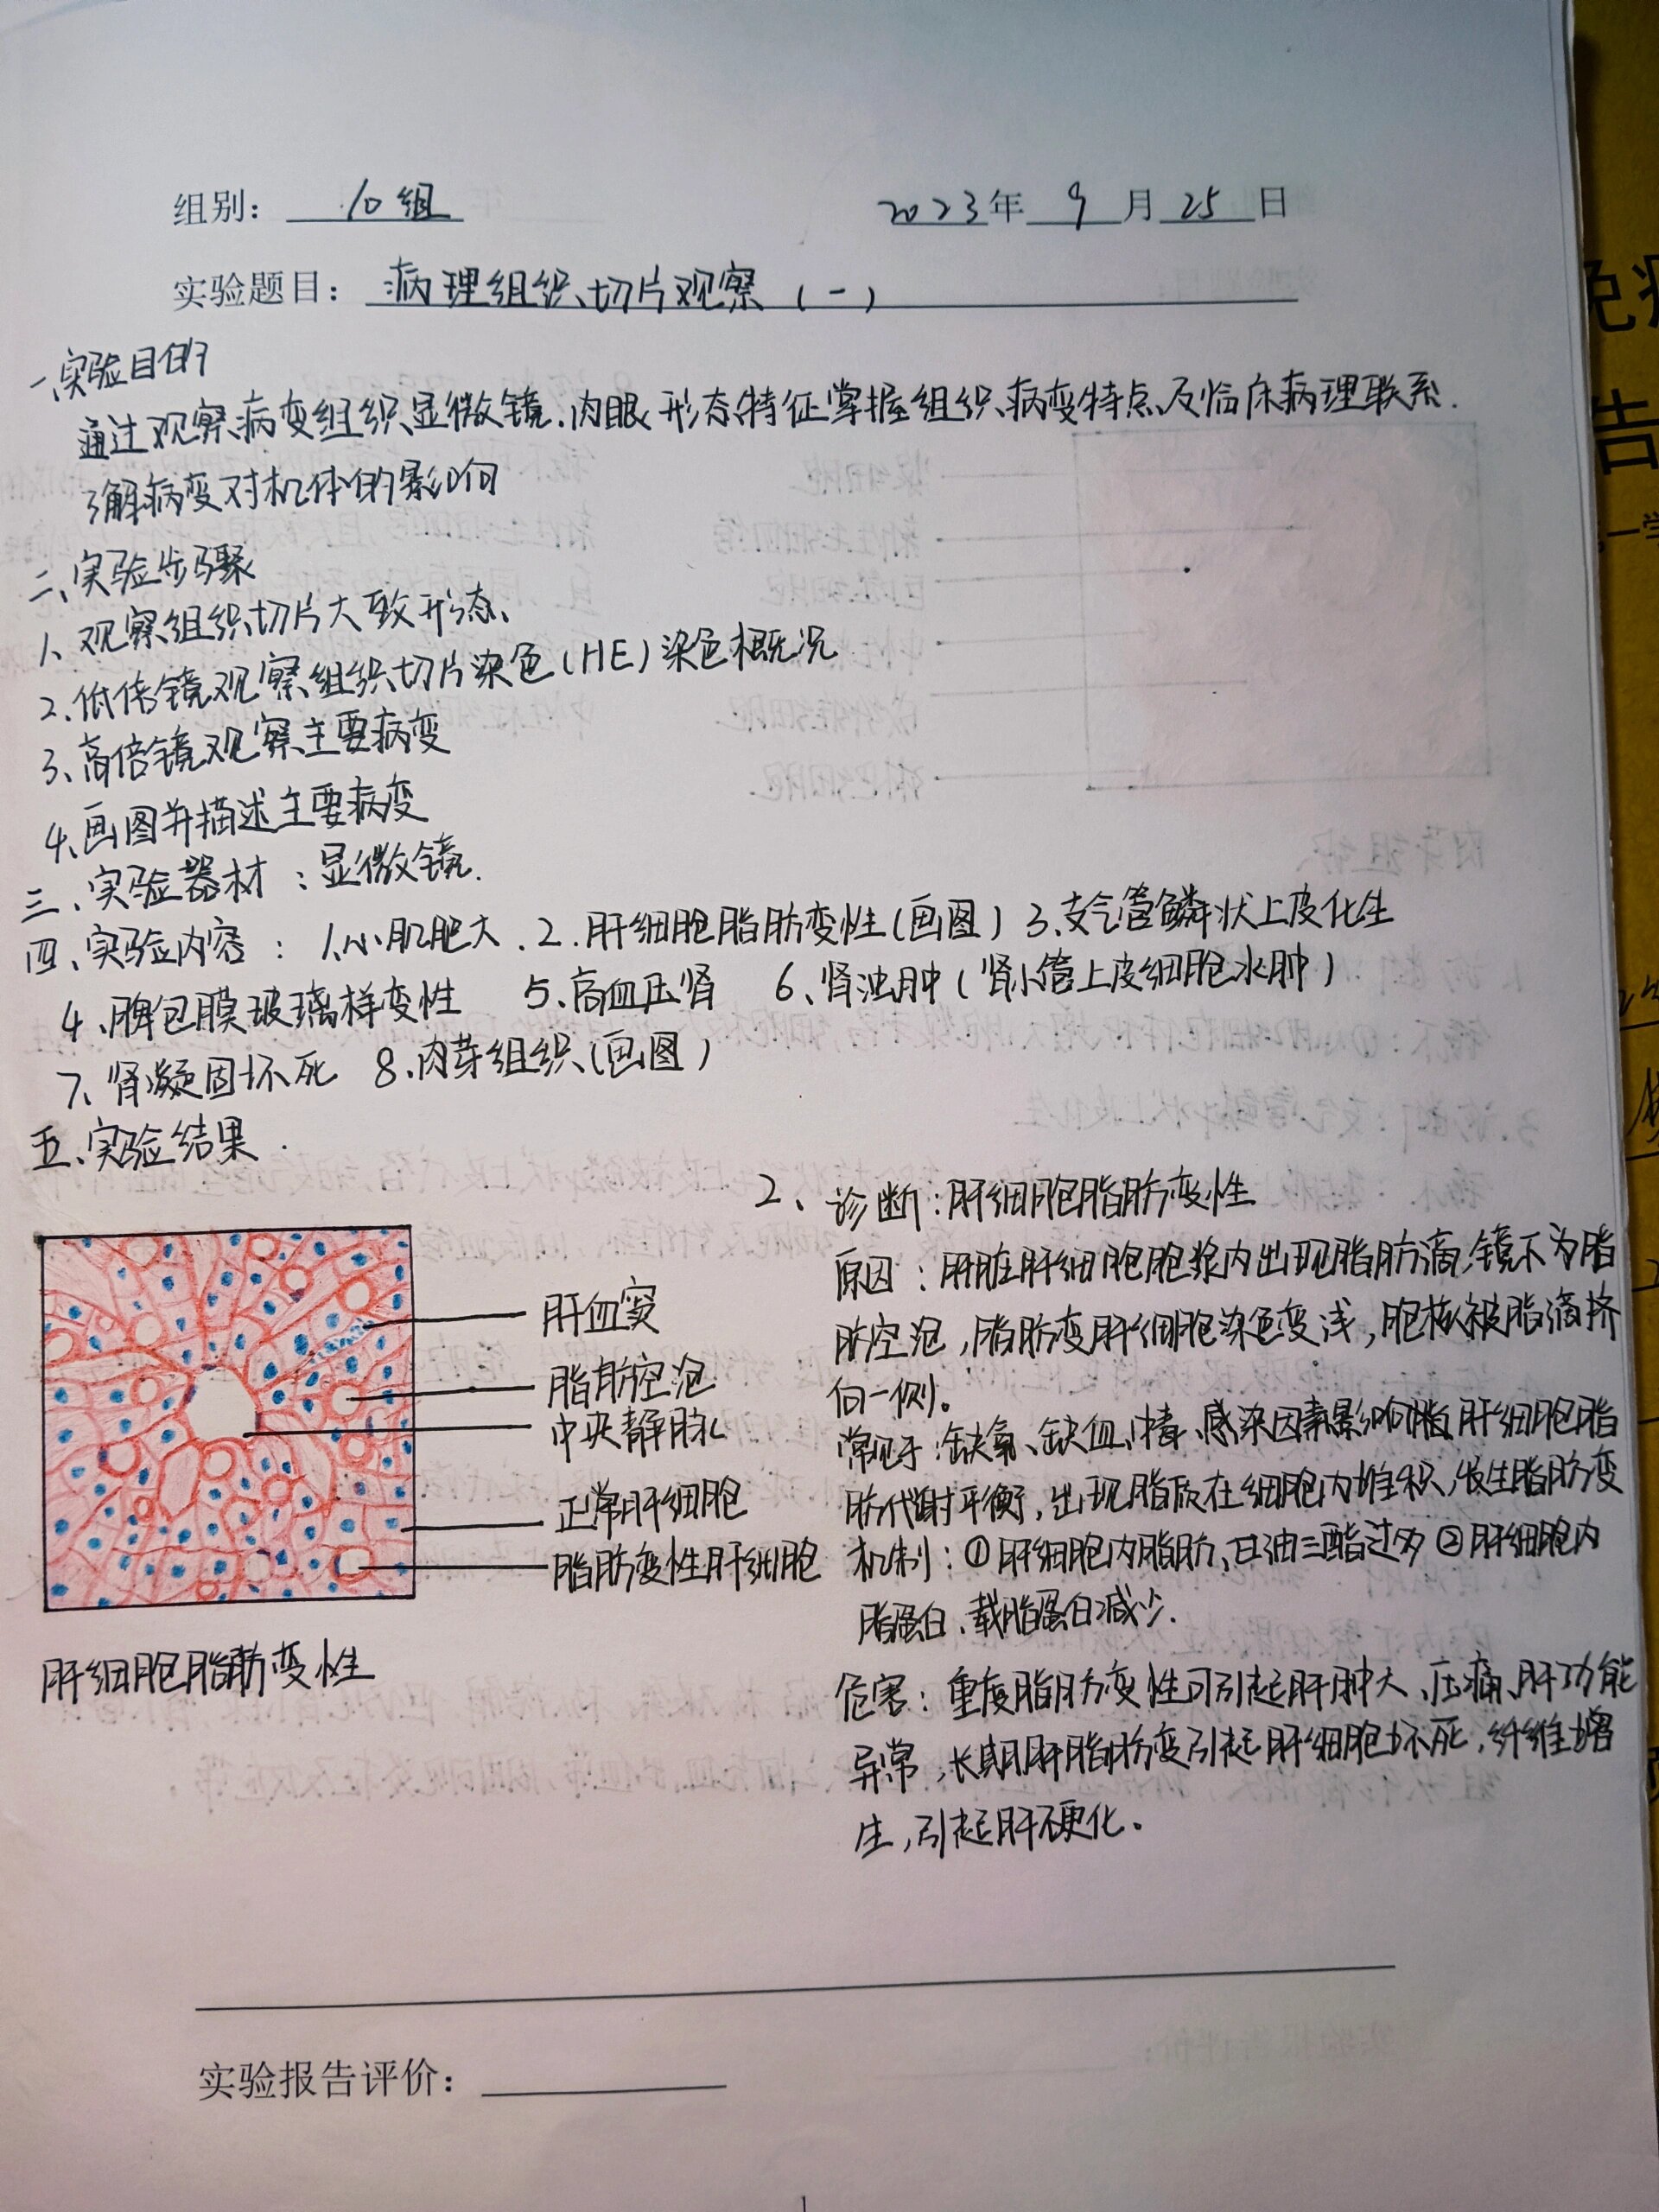 组别： 10组 2023年 9月 25日
实验题目： 病理组织切片观察（一）
一、实验目的
通过观察病变组织显微镜、肉眼形态特征掌握组织病变特点及临床病理联系.
了解病变对机体的影响
二、实验步骤
1、观察组织切片大致形态、
2、低倍镜观察组织切片染色(HE)染色概况
3、高倍镜观察主要病变
4、画图并描述主要病变
三、实验器材：显微镜.
四、实验内容： 1、心肌肥大. 2.肝细胞脂肪变性(画图) 3、支气管鳞状上皮化生
4、脾包膜玻璃样变性 5、高血压肾 6、肾浊肿(肾小管上皮细胞水肿)
7、肾凝固坏死 8、肉芽组织(画图)
五、实验结果.
肝血窦
脂肪空泡
中央静脉
正常肝细胞
脂肪变性肝细胞
肝细胞脂肪变性
2、诊断：肝细胞脂肪变性
原因：肝脏肝细胞胞浆内出现脂肪滴,镜下为脂
肪空泡,脂肪变肝细胞染色变浅,胞核被脂滴挤
向一侧。
常见于:缺氧、缺血、中毒、感染因素影响肝细胞脂
肪代谢平衡,出现脂质在细胞内堆积,发生脂肪变
机制：①肝细胞内脂肪、甘油三酯过多 ②肝细胞内
脂蛋白、载脂蛋白减少.
危害：重度脂肪变性可引起肝肿大、压痛、肝功能
异常,长期肝脂肪变引起肝细胞坏死,纤维增
生,引起肝硬化。
实验报告评价：
1
免疫
告